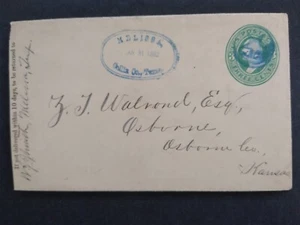 If not delivered within 10 days, to be returned to
MELISSA,
Collin Co., Texas.
Z. T. Walrond, Esq,
Osborne,
Osborne Co.
Kansas